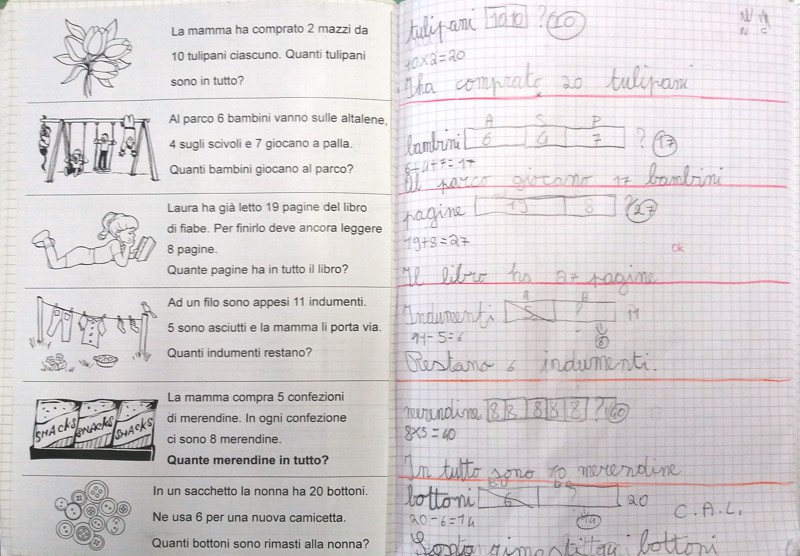 La mamma ha comprato 2 mazzi da
10 tulipani ciascuno. Quanti tulipani
sono in tutto?
Al parco 6 bambini vanno sulle altalene,
4 sugli scivoli e 7 giocano a palla.
Quanti bambini giocano al parco?
Laura ha già letto 19 pagine del libro
di fiabe. Per finirlo deve ancora leggere
8 pagine.
Quante pagine ha in tutto il libro?
Ad un filo sono appesi 11 indumenti.
5 sono asciutti e la mamma li porta via.
Quanti indumenti restano?
SNACKS SNACKS SNACKS
La mamma compra 5 confezioni
di merendine. In ogni confezione
ci sono 8 merendine.
Quante merendine in tutto?
In un sacchetto la nonna ha 20 bottoni.
Ne usa 6 per una nuova camicetta.
Quanti bottoni sono rimasti alla nonna?
tulipani 10 10 ? 20
10x2=20
ha comprato 20 tulipani
A S P
bambini 6 4 7 ? 17
6+4+7=17
Al parco giocano 17 bambini
pagine 19 8 ? 27
19+8=27
Ok
Il libro ha 27 pagine
A R
Indumenti ? 11
11-5=6
6
Restano 6 indumenti.
merendine 8 8 8 8 8 ? 40
8x5=40
In tutto sono merendine
bottoni 6 ? 20
20-6=14
14
C.A.L.
bottoni